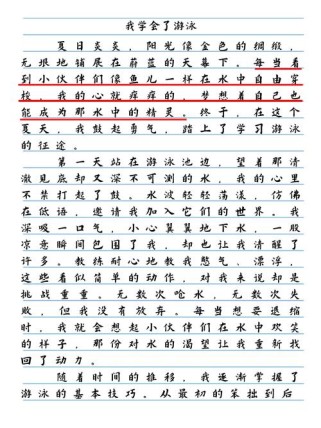 我学会了游泳
夏日炎炎，阳光像金色的绸缎，
无垠地铺展在蔚蓝的天幕下。每当看
到小伙伴们像鱼儿一样在水中自由穿
梭，我的心就痒痒的，梦想着自己也
能成为那水中的精灵。终于，在这个
夏天，我鼓起勇气，踏上了学习游泳
的征途。
第一天站在游泳池边，望着那清
澈见底却又深不可测的水，我的心里
不禁打起了鼓。水波轻轻荡漾，仿佛
在低语，邀请我加入它们的世界。我
深吸一口气，小心翼翼地下水，一股
凉意瞬间包围了我，却也让我清醒了
许多。教练耐心地教我憋气，漂浮，
这些看似简单的动作，对我来说却是
挑战重重。无数次呛水，无数次失
败，但我没有放弃。每当想要退缩
时，我就会想起小伙伴们在水中欢笑
的样子，那份对水的渴望让我重新找
回了动力。
随着时间的推移，我逐渐掌握了
游泳的基本技巧。从最初的笨拙到后